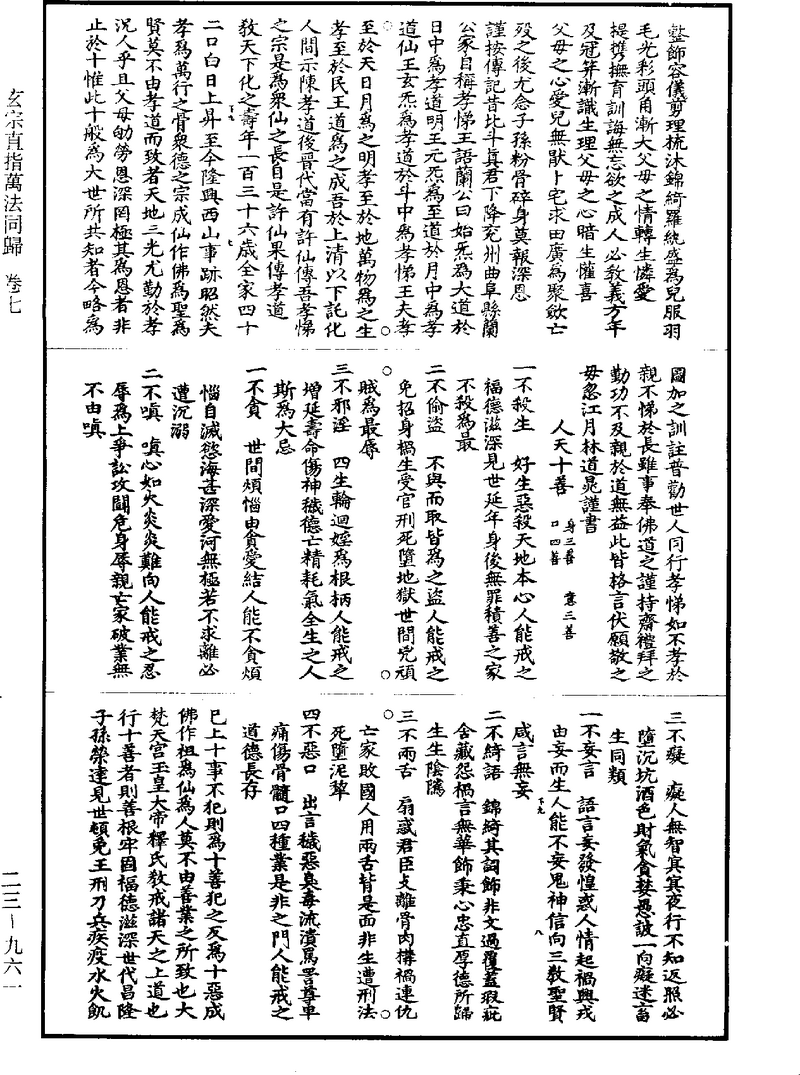 整飾容儀剪理梳沐錦綺羅紈盛爲兒服羽
毛光彩頭角漸大父母之情轉生憐愛
提携撫育訓誨無忘欲之成人必教義方年
及冠笄漸識生理父母之心暗生懽喜
父母之心愛兒無猒卜宅求田廣爲聚斂亡
歿之後尤念子孫粉骨碎身莫報深恩
謹按傳記昔比斗真君下降兖州曲阜縣蘭
公家自稱孝悌王語蘭公曰始炁爲大道於
日中爲孝道明王元炁爲至道於月中爲孝
道仙王玄炁爲孝道於斗中爲孝悌王夫孝
至於天日月爲之明孝至於地萬物爲之生
孝至於民王道爲之成吾於上清以下託化
人間示陳孝道後晉代當有許仙傳吾孝悌
之宗是爲衆仙之長自是許仙果傳孝道
教天下化之壽年一百三十六歲全家四十
二口白日上昇至今隆興西山事跡昭然夫
孝爲萬行之骨衆德之宗成仙作佛爲聖爲
賢莫不由孝道而致者天地三光尤勤於孝
况人乎且父母劬勞恩深罔極其爲恩者非
止於十惟此十般爲大世所共知者今略爲
圖加之訓註普勸世人同行孝悌如不孝於
親不悌於長雖事奉佛道之謹持齋禮拜之
勤功不及親於道無益此皆格言伏願敬之
毋忽江月林道晁謹書
人天十善 身三善 口四善 意三善
一不殺生 好生惡殺天地本心人能戒之
福德滋深見世延年身後無罪積善之家
不殺爲最
二不偷盜 不與而取皆爲之盜人能戒之
免招身禍生受官刑死墮地獄世間兇頑
賊爲最辱
三不邪淫 四生輪迴婬爲根柄人能戒之
增延壽命傷神穢德亡精耗氣全生之人
斯爲大忌
一不貪 世間煩惱由貪愛結人能不貪煩
惱自滅慾海甚深愛河無極若不求離必
遭沉溺
二不嗔 嗔心如火炎炎難向人能戒之忍
辱爲上爭訟攻鬪危身辱親亡家破業無
不由嗔
三不癡 癡人無智㝠㝠夜行不知返照必
墮沉坑酒色財氣貪婪愚詖一向癡迷畜
生同類
一不妄言 語言妄發惶惑人情起禍興戎
由妄而生人能不妄鬼神信向三教聖賢
咸言無妄
二不綺語 錦綺其詞飾非文過覆蓋瑕疵
含藏怨禍言無華飾秉心忠直厚德所歸
生生陰騭
三不兩舌 扇惑君臣攴離骨肉構禍連仇
亡家敗國人用兩舌背是面非生遭刑法
死墮泥犂
四不惡口 出言穢惡臭毒流潰罵詈尊卑
痛傷骨髓口四種業是非之門人能戒之
道德長存
已上十事不犯則爲十善犯之反爲十惡成
佛作祖爲仙爲人莫不由善業之所致也大
梵天宮玉皇大帝釋氏教戒諸天之上道也
行十善者則善根牢固福德滋深世代昌隆
子孫榮達見世頓免王刑刀兵疾疫水火飢
玄宗直指萬法同歸 卷七
二三－九六一